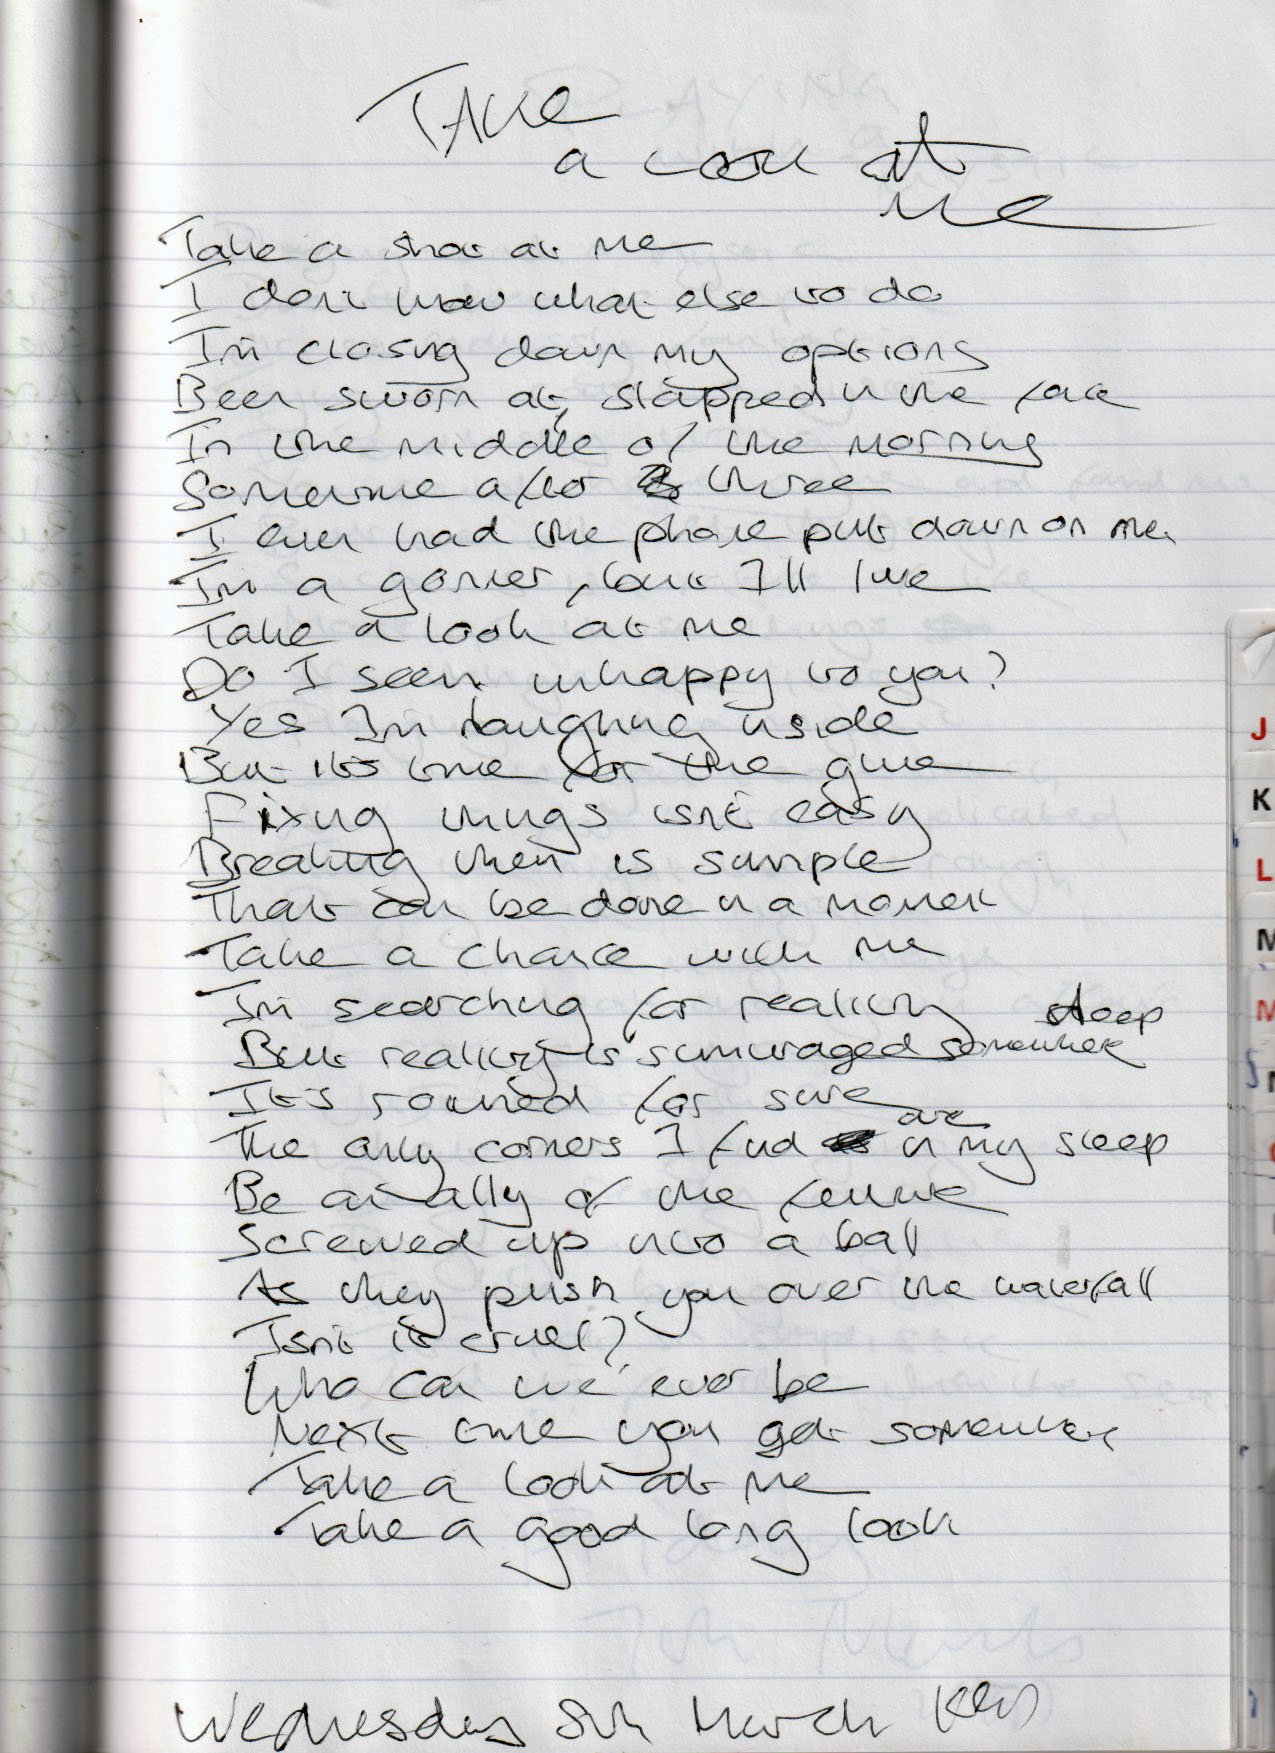 Take
a look at
me
Take a shot at me
I dont know what else to do
Im closing down my options
Been sworn at, slapped in the face
In the middle of the morning
Sometime after three
I even had the phone put down on me
Im a goner, but I'll live
Take a look at me
Do I seem unhappy to you?
Yes Im laughing inside
But its time for the glue
Fixing things isnt easy
Breaking them is simple
That can be done in a moment
Take a chance with me
Im searching for reality
steep
But reality is submerged somewhere
It's rounded for sure
are
The only corners I find in my sleep
Be an ally of the future
Screwed up into a ball
As they push you over the waterfall
Isnt it cruel?
Who can we ever be
Next time you get somewhere
Take a look at me
Take a good long look
Wednesday 8th March
J
K
L
M
M